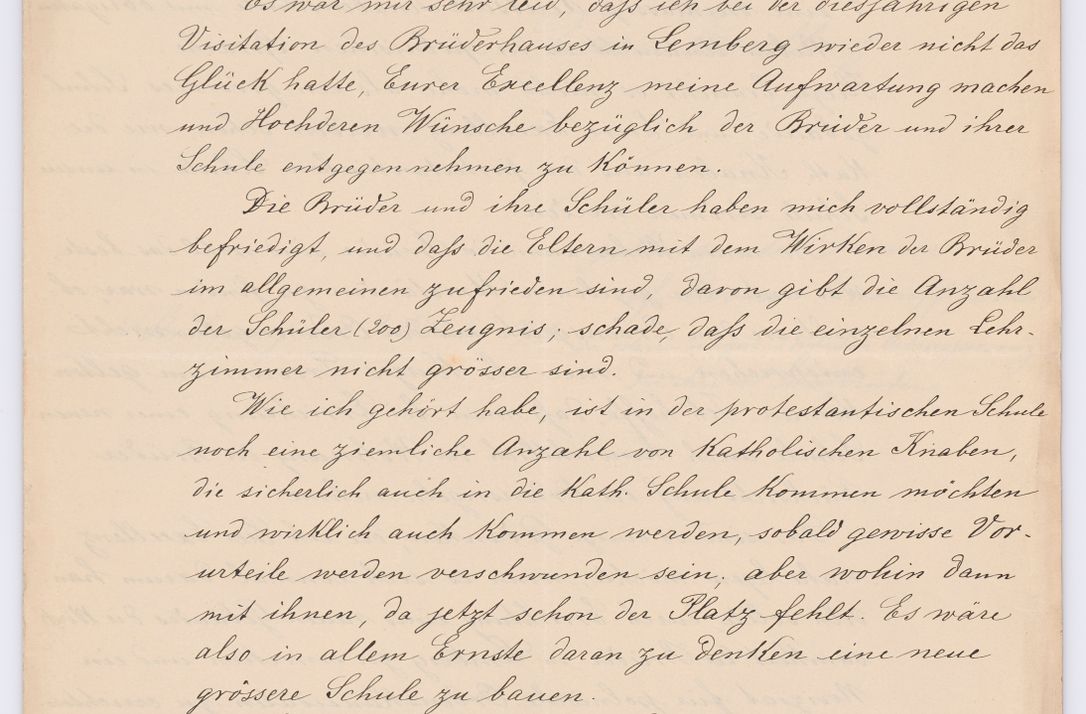 Es war mir sehr leid, daß ich bei der diesjährigen
Visitation des Brüderhauses in Lemberg wieder nicht das
Glück hatte, Eurer Excellenz meine Aufwartung machen
und Hochderen Wünsche bezüglich der Brüder und ihrer
Schule entgegennehmen zu können.
Die Brüder und ihre Schüler haben mich vollständig
befriedigt, und daß die Eltern mit dem Wirken der Brüder
im allgemeinen zufrieden sind, davon gibt die Anzahl
der Schüler (200) Zeugnis; schade, daß die einzelnen Lehr-
zimmer nicht grösser sind.
Wie ich gehört habe, ist in der protestantischen Schule
noch eine ziemliche Anzahl von katholischen Knaben,
die sicherlich auch in die kath. Schule kommen möchten
und wirklich auch kommen werden, sobald gewisse Vor-
urteile werden verschwunden sein; aber wohin dann
mit ihnen, da jetzt schon der Platz fehlt. Es wäre
also in allem Ernste daran zu denken eine neue
grössere Schule zu bauen.